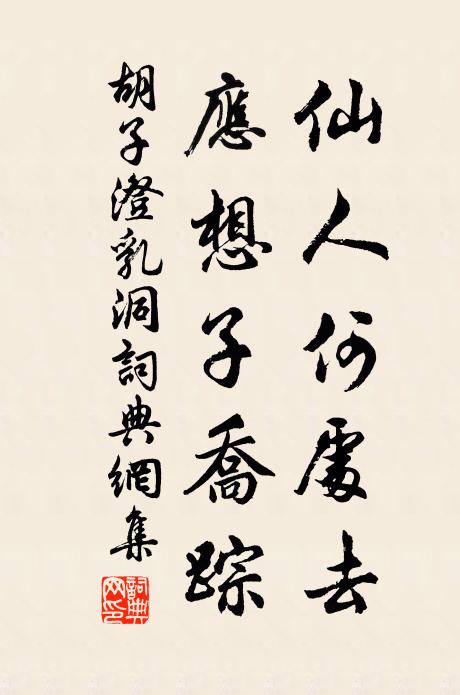 仙人何處去
應想子喬踪
胡子澄乳洞詞典網集
詞典網印